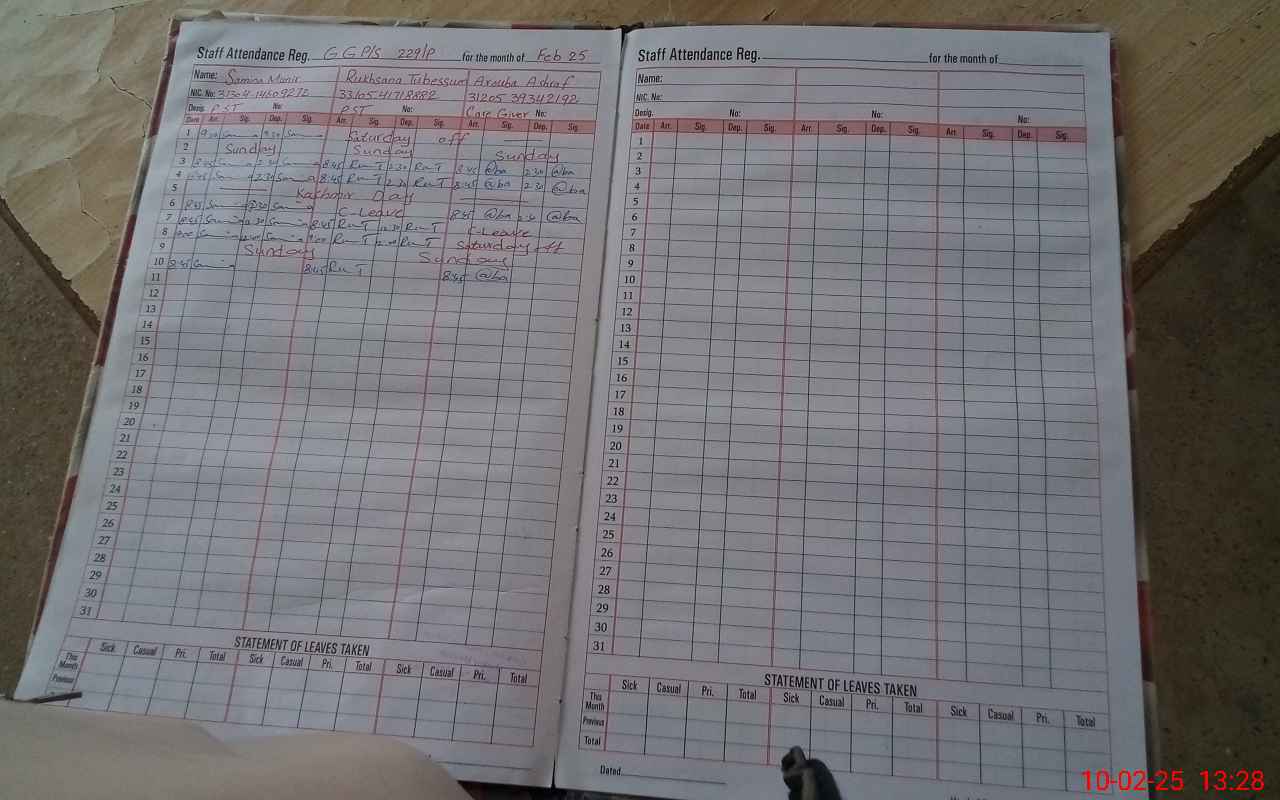 Staff Attendance Reg. G G P/S 229/P for the month of Feb 25
Name: Samina Munir Rukhsana Tabessum Arouba Ashraf
NIC. No: 33105 41718882 31205 39342192
Desig. PST No: PST No: Care Giver No:
Date Arr. Sig. Dep. Sig. Arr. Sig. Dep. Sig. Arr. Sig. Dep. Sig.
1 Saturday off
2 Sunday Sunday Sunday
3 8:45 2:30 8:45 RmT 2:30 RmT 8:45 @ba 2:30 @ba
4 8:45 2:30 8:45 RmT 2:30 RmT 8:45 @ba 2:30 @ba
5 Kashmir Day
6 8:45 2:30 C-Leave 8:45 @ba 2:30 @ba
7 8:45 2:30 8:45 RmT 2:30 RmT C-Leave
8 RmT RmT Saturday off
9 Sunday Sunday
10 8:45 8:45 RmT 8:45 @ba
11
12
13
14
15
16
17
18
19
20
21
22
23
24
25
26
27
28
29
30
31
STATEMENT OF LEAVES TAKEN
Sick Casual Pri. Total Sick Casual Pri. Total Sick Casual Pri. Total
This Month
Previous
Staff Attendance Reg. for the month of
Name:
NIC. No:
Desig. No: No: No:
Date Arr. Sig. Dep. Sig. Arr. Sig. Dep. Sig. Arr. Sig. Dep. Sig.
1
2
3
4
5
6
7
8
9
10
11
12
13
14
15
16
17
18
19
20
21
22
23
24
25
26
27
28
29
30
31
STATEMENT OF LEAVES TAKEN
Sick Casual Pri. Total Sick Casual Pri. Total Sick Casual Pri. Total
This Month
Previous
Total
Dated
10-02-25 13:28